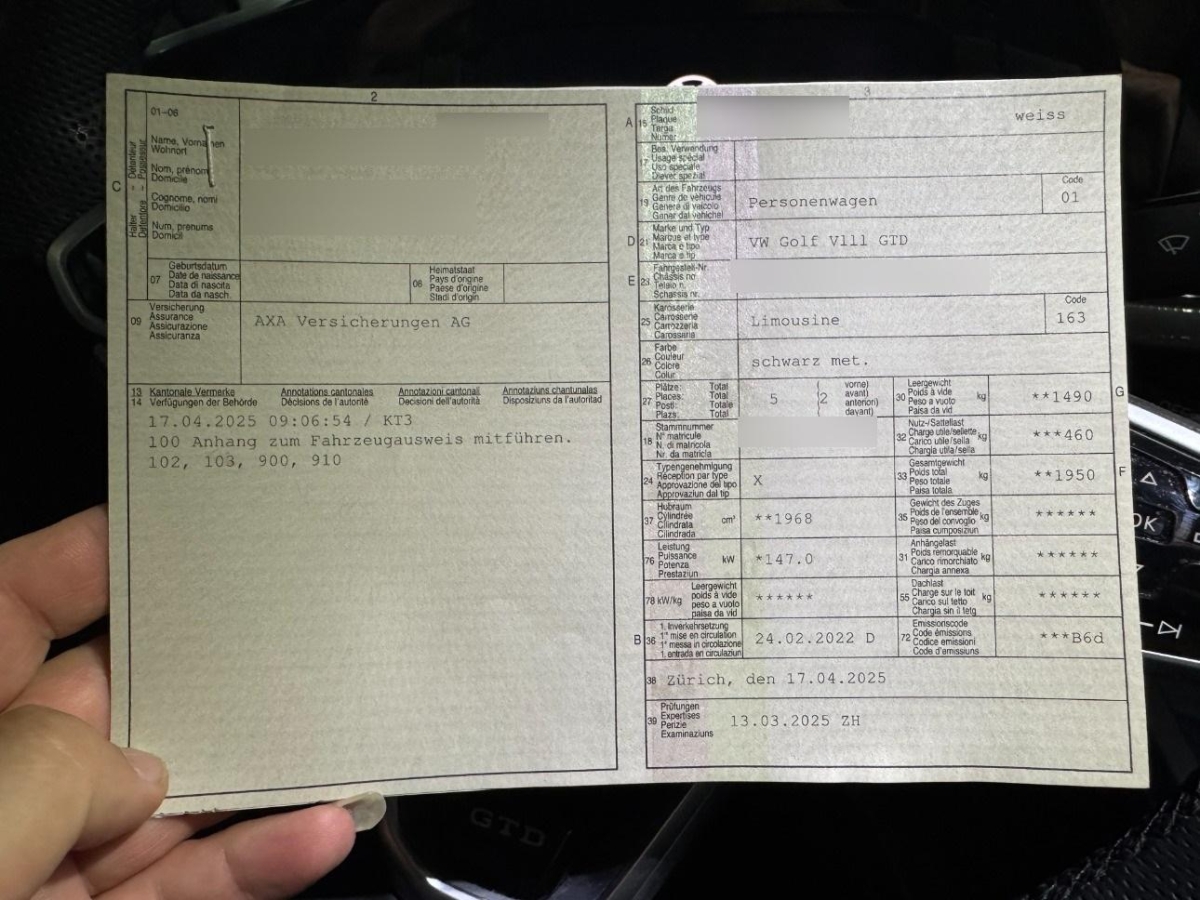 2
01-06
C
Halter - Détenteur
Detentore - Possessur
Name, Vornamen
Wohnort
Nom, prénom
Domicile
Cognome, nomi
Domicilio
Num, prenums
Domicil
07
Geburtsdatum
Date de naissance
Data di nascita
Data da nasch.
08
Heimatstaat
Pays d'origine
Paese d'origine
Stadi d'origin
09
Versicherung
Assurance
Assicurazione
Assicuranza
AXA Versicherungen AG
13 Kantonale Vermerke Annotations cantonales Annotazioni cantonali Annotaziuns chantunalas
14 Verfügungen der Behörde Décisions de l'autorité Decisioni dell'autorità Disposiziuns da l'autoritad
17.04.2025 09:06:54 / KT3
100 Anhang zum Fahrzeugausweis mitführen.
102, 103, 900, 910
3
A 15
Schild
Plaque
Targa
Numer
weiss
17
Bes. Verwendung
Usage spécial
Uso speciale
Diever spezial
19
Art des Fahrzeugs
Genre de véhicule
Genere di veicolo
Gener dal vehichel
Personenwagen
Code
01
D 21
Marke und Typ
Marque et type
Marca e tipo
Marca e tip
VW Golf Vlll GTD
E 23
Fahrgestell-Nr.
Châssis no
Telaio n.
Schassis nr.
25
Karosserie
Carrosserie
Carrozzeria
Carossaria
Limousine
Code
163
26
Farbe
Couleur
Colore
Colur
schwarz met.
27
Plätze: Total
Places: Total
Posti: Totale
Plazs: Total
5
2
vorne)
avant)
anteriori)
davant)
30
Leergewicht
Poids à vide
Peso a vuoto
Paisa da vid
kg
**1490
G
18
Stammnummer
N° matricule
N. di matricola
Nr. da matricla
32
Nutz-/Sattellast
Charge utile/sellette
Carico utile/sella
Chargia utila/sella
kg
***460
24
Typengenehmigung
Réception par type
Approvazione del tipo
Approvaziun dal tip
X
33
Gesamtgewicht
Poids total
Peso totale
Paisa totala
kg
**1950
F
37
Hubraum
Cylindrée
Cilindrata
Cilindrada
cm³
**1968
35
Gewicht des Zuges
Poids de l'ensemble
Peso del convoglio
Paisa cumposiziun
kg
******
76
Leistung
Puissance
Potenza
Prestaziun
kW
*147.0
31
Anhängelast
Poids remorquable
Carico rimorchiato
Chargia annexa
kg
******
78 kW/kg
Leergewicht
poids à vide
peso a vuoto
paisa da vid
******
55
Dachlast
Charge sur le toit
Carico sul tetto
Chargia sin il tetg
kg
******
B 36
1. Inverkehrsetzung
1re mise en circulation
1a messa in circolazione
1. entrada en circulaziun
24.02.2022 D
72
Emissionscode
Code émissions
Codice emissioni
Code d'emissiuns
***B6d
38 Zürich, den 17.04.2025
39
Prüfungen
Expertises
Perizie
Examinaziuns
13.03.2025 ZH
OK
GTD